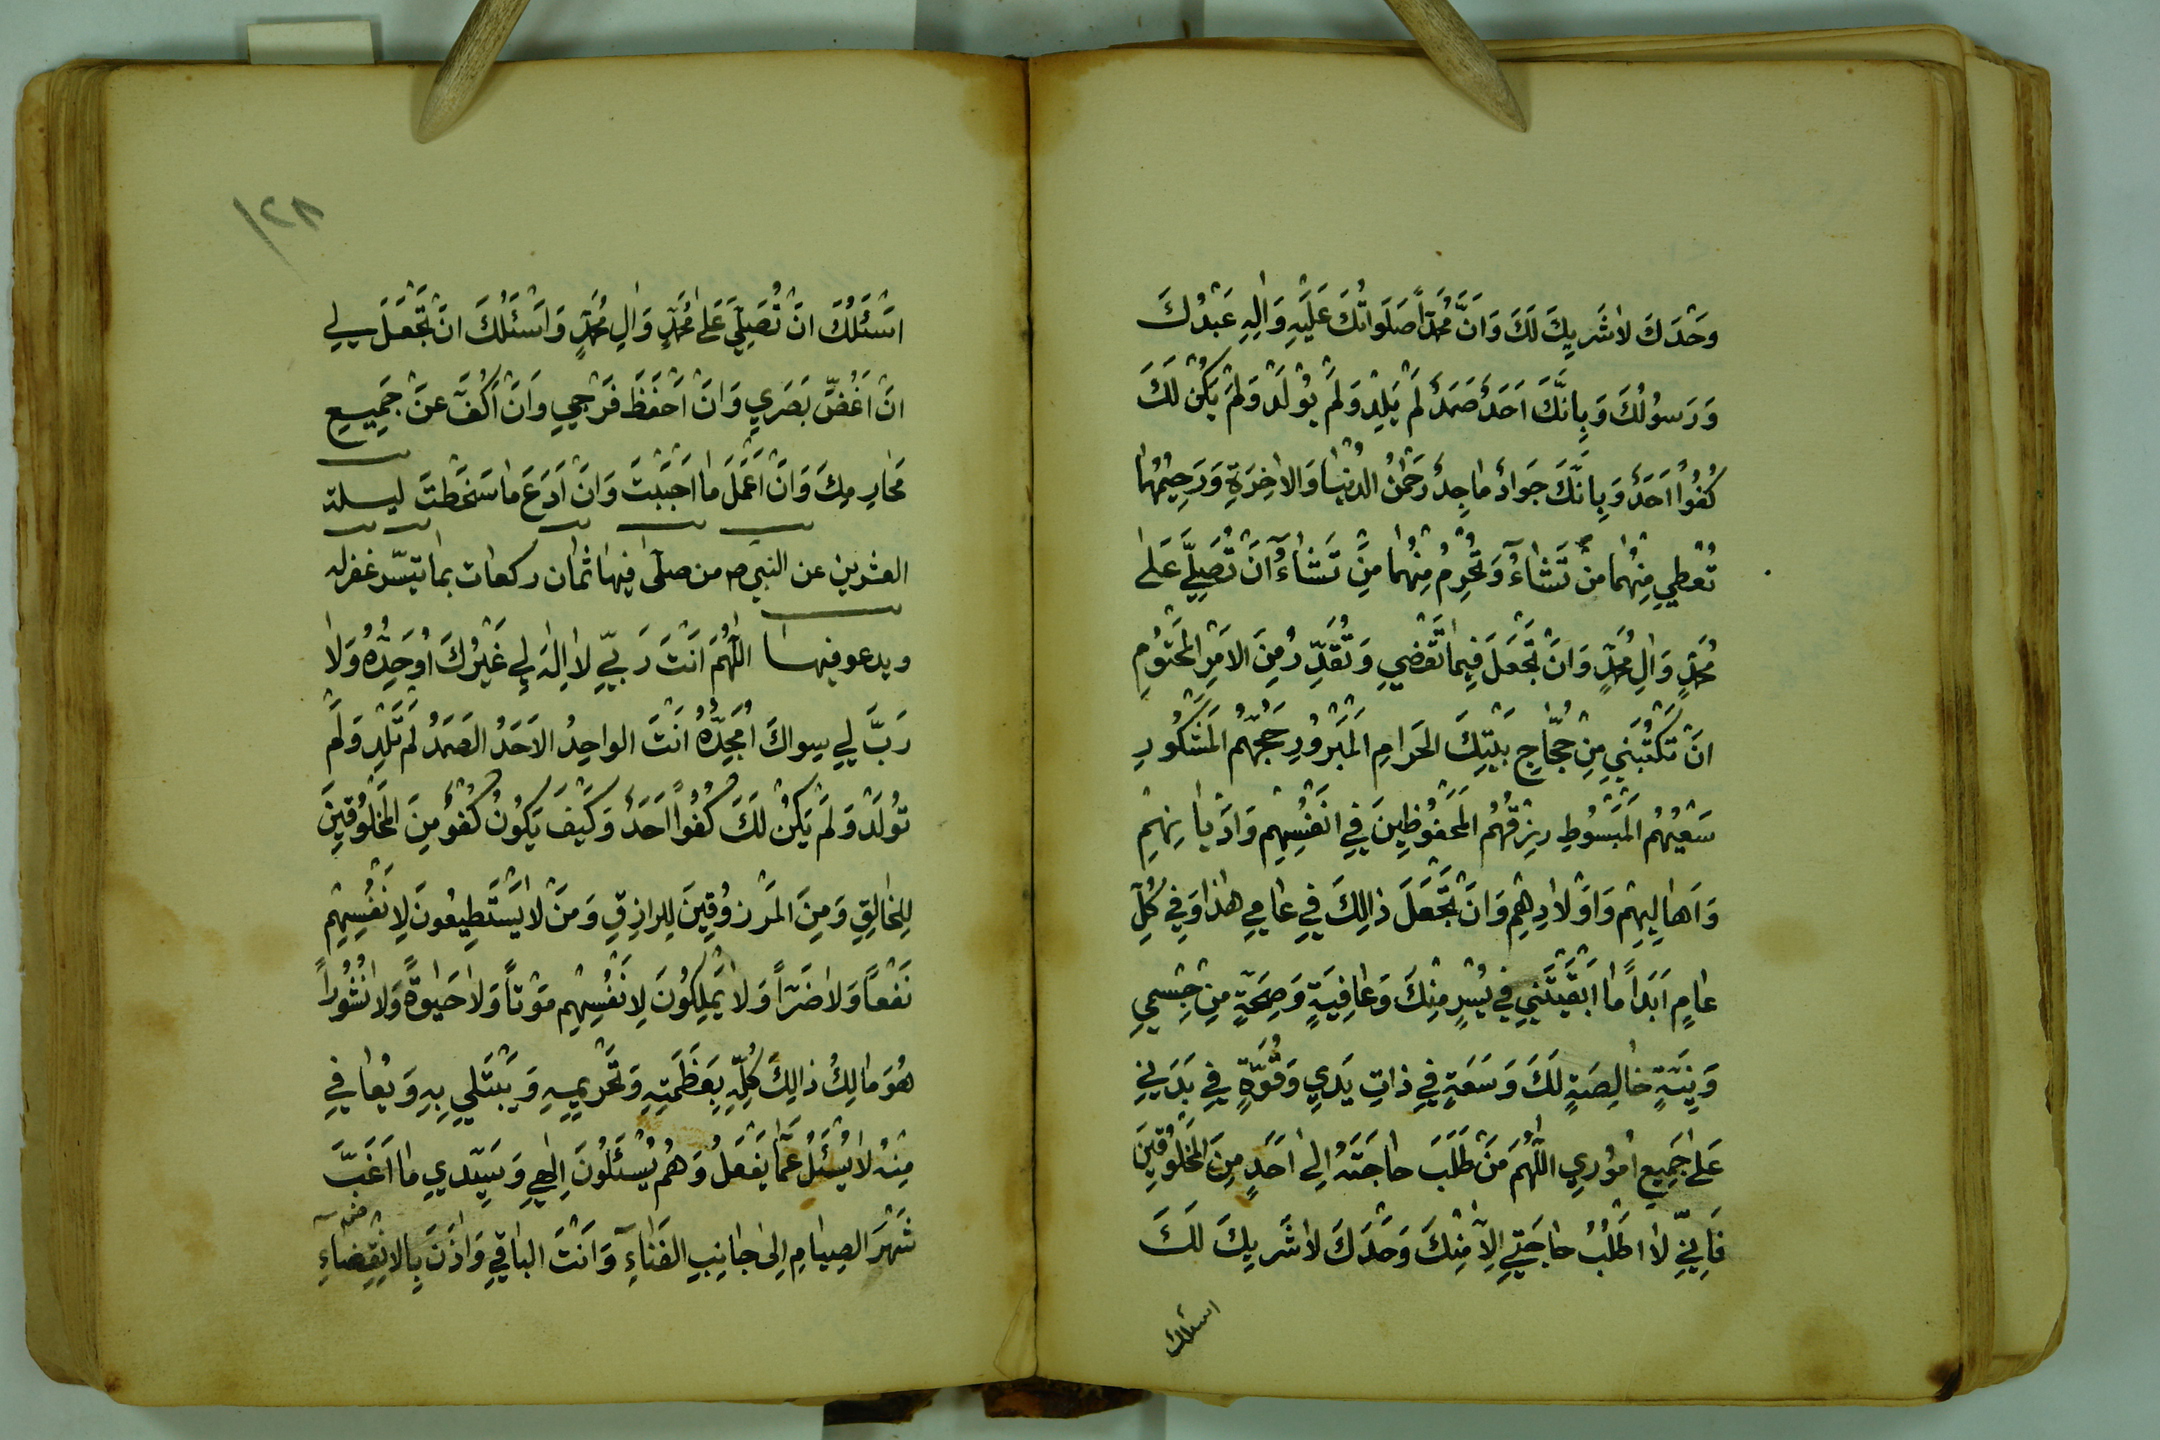 وَحْدَكَ لاٰشَرِيكَ لَكَ وَاَنَّ مُحَمَّداً صَلَوٰاتُكَ عَلَيْهِ وَاٰلِهِ عَبْدُكَ
وَرَسُولُكَ وَبِاَنَّكَ اَحَدٌ صَمَدٌ لَمْ يَلِدْ وَلَمْ يُولَدْ وَلَمْ يَكُنْ لَكَ
كُفُواً اَحَدٌ وَبِاَنَّكَ جَوٰادٌ مٰاجِدٌ رَحْمٰنُ الدُّنْيٰا وَالاٰخِرَةِ وَرَحِيمُهُمٰا
تُعْطِي مِنْهُمٰا مَنْ تَشٰاءُ وَتَحْرِمُ مِنْهُمٰا مَنْ تَشٰاءُ اَنْ تُصَلِّيَ عَلىٰ
مُحَمَّدٍ وَاٰلِ مُحَمَّدٍ وَاَنْ تَجْعَلَ فِيمٰا تَقْضِي وَتُقَدِّرُ مِنَ الاَمْرِ الْمَحْتُومِ
اَنْ تَكْتُبَنِي مِنْ حُجّٰاجِ بَيْتِكَ الحَرٰامِ الْمَبْرُورِ حَجُّهُمُ الْمَشْكُورِ
سَعْيُهُمُ الْمَبْسُوطِ رِزْقُهُمُ الْمَحْفُوظِينَ فِي اَنْفُسِهِمْ وَاَدْيٰانِهِمْ
وَاَهٰالِيهِمْ وَاَوْلاٰدِهِمْ وَاَنْ تَجْعَلَ ذٰالِكَ فِي عٰامِي هٰذٰا وَفِي كُلِّ
عٰامٍ اَبَداً مٰا اَبْقَيْتَنِي فِي يُسْرٍ مِنْكَ وَعٰافِيَةٍ وَصِحَّةٍ مِنْ جِسْمِي
وَنِيَّةٍ خٰالِصَةٍ لَكَ وَسَعَةٍ فِي ذٰاتِ يَدِي وَقُوَّةٍ فِي بَدَنِي
عَلىٰ جَمِيعِ اُمُورِي اَللّٰهُمَّ مَنْ طَلَبَ حٰاجَتَهُ اِلىٰ اَحَدٍ مِنَ الْمَخْلُوقِينَ
فَاِنِّي لاٰ اَطْلُبُ حٰاجَتِي اِلاّٰ مِنْكَ وَحْدَكَ لاٰشَرِيكَ لَكَ
اسئلك
١٢٨
اَسْئَلُكَ اَنْ تُصَلِّيَ عَلىٰ مُحَمَّدٍ وَاٰلِ مُحَمَّدٍ وَاَسْئَلُكَ اَنْ تَجْعَلَ لِي
اَنْ اَغُضَّ بَصَرِي وَاَنْ اَحْفَظَ فَرْجِي وَاَنْ اَكُفَّ عَنْ جَمِيعِ
مَحٰارِمِكَ وَاَنْ اَعْمَلَ مٰا اَحْبَبْتَ وَاَنْ اَدَعَ مٰا سَخَطْتَ ليلة
العشرين عن النبي ص من صلّى فيها ثمان ركعات بما تيسّر غفر له
ويدعو فيها اَللّٰهُمَّ اَنْتَ رَبِّي لاٰ اِلٰهَ لِي غَيْرُكَ اُوَحِّدُهُ وَلاٰ
رَبَّ لِي سِوٰاكَ اُمَجِّدُهُ اَنْتَ الوٰاحِدُ الاَحَدُ الصَمَدُ لَمْ تَلِدْ وَلَمْ
تُولَدْ وَلَمْ يَكُنْ لَكَ كُفُواً اَحَدٌ وَكَيْفَ يَكُونُ كُفْوٌ مِنَ الْمَخْلُوقِينَ
لِلخٰالِقِ وَمِنَ الْمَرْزُوقِينَ لِلرازِقِ وَمَنْ لاٰيَسْتَطِيعُونَ لِاَنْفُسِهِمْ
نَفْعاً وَلاٰ ضَرّاً وَلاٰ يَمْلِكُونَ لِاَنْفُسِهِمْ مَوْتاً وَلاٰ حَيٰوةً وَلاٰ نُشُوراً
هُوَ مٰالِكُ ذٰالِكَ كُلِّهِ بِعَظَمَتِهِ وَتَحْرِيمِهِ وَيَبْتَلِي بِهِ وَيُعٰافِي
مِنْهُ لاٰ يُسْئَلُ عَمّٰا يَفْعَلُ وَهُمْ يُسْئَلُونَ اِلٰهِي وَسَيِّدِي مٰا اَغَبَّ
شَهْرَ الصِيٰامِ اِلىٰ جٰانِبِ الفَنٰاءِ وَاَنْتَ البٰاقِي وَاٰذَنَ بِالاِنْقِضٰاءِ